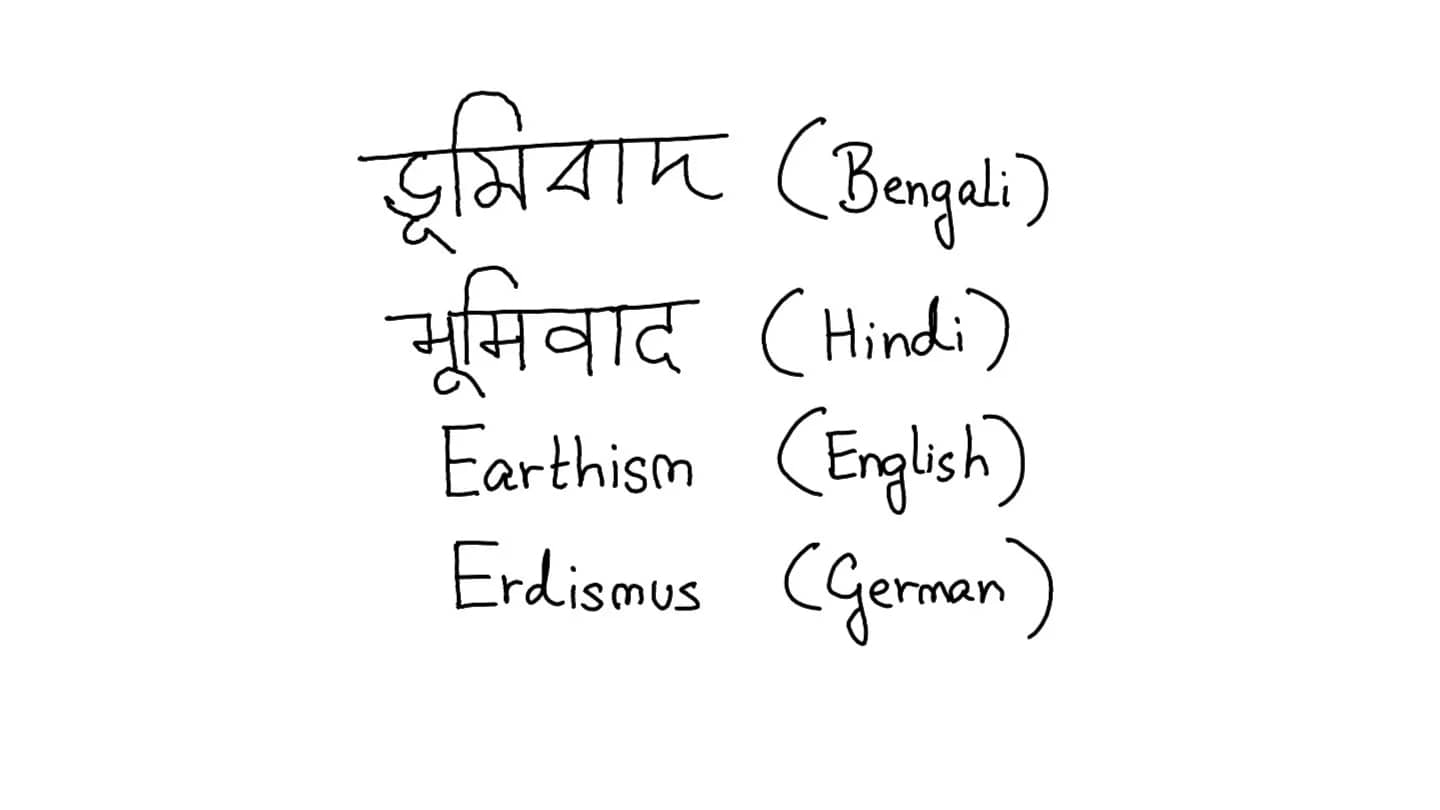 ভূমিবাদ (Bengali)
भूमिवाद (Hindi)
Earthism (English)
Erdismus (German)